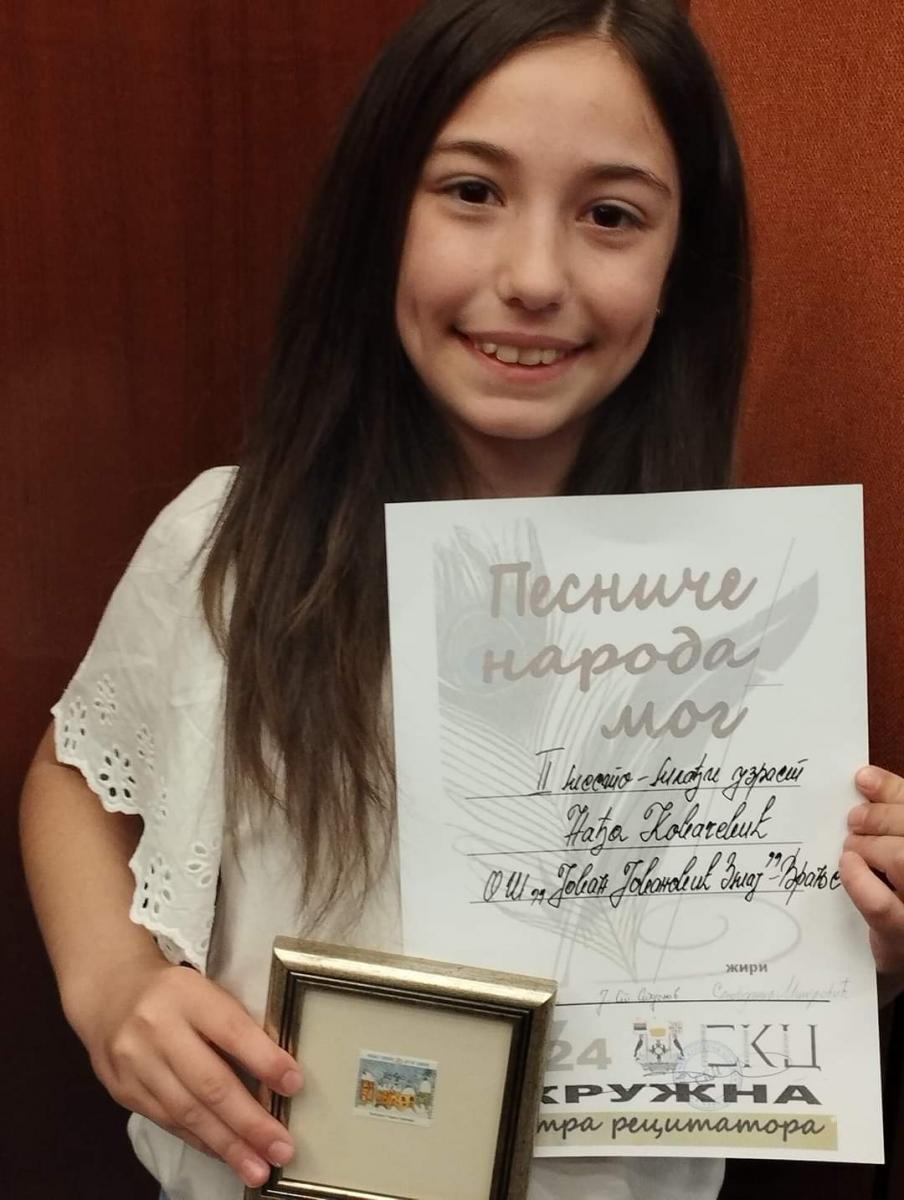 Песниче
народа
мог
II место - млађи узраст
Нађа Ковачевић
ОШ „Јован Јовановић Змај” - Врањ
жири
24 СКЦ
КРУЖНА
тра рецитатора